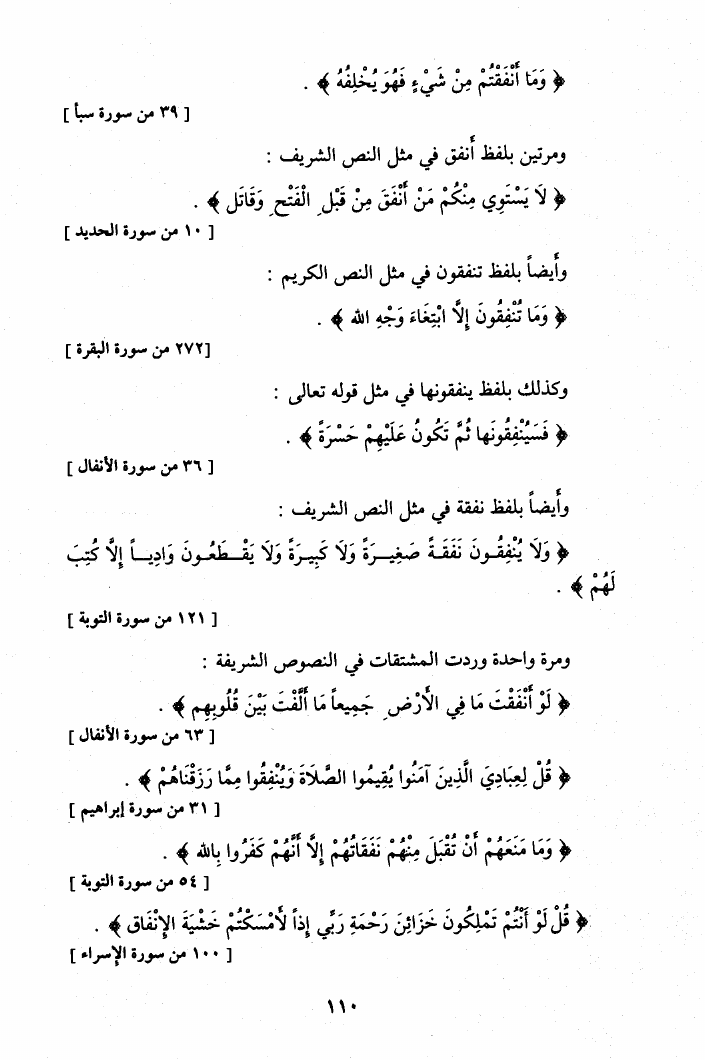 ﴿ وَمَا أَنْفَقْتُمْ مِنْ شَيْءٍ فَهُوَ يُخْلِفُهُ ﴾ .
[ ٣٩ من سورة سبأ ]
ومرتين بلفظ أَنفق في مثل النص الشريف :
﴿ لاَ يَسْتَوِي مِنْكُمْ مَنْ أَنْفَقَ مِنْ قَبْلِ الْفَتْحِ وَقَاتَل ﴾ .
[ ١٠ من سورة الحديد ]
وأَيضاً بلفظ تنفقون في مثل النص الكريم :
﴿ وَمَا تُنْفِقُونَ إِلَّا ابْتِغَاءَ وَجْهِ الله ﴾ .
[٢٧٢ من سورة البقرة ]
وكذلك بلفظ ينفقونها في مثل قوله تعالى :
﴿ فَسَيُنْفِقُونَها ثُمَّ تَكُونُ عَلَيْهِمْ حَسْرَةً ﴾ .
[ ٣٦ من سورة الأنفال ]
وأَيضاً بلفظ نفقة في مثل النص الشريف :
﴿ وَلَا يُنْفِقُونَ نَفَقَةً صَغِيرَةً وَلَا كَبِيرَةً وَلَا يَقْطَعُونَ وَادِياً إِلَّا كُتِبَ
لَهُمْ ﴾ .
[ ١٢١ من سورة التوبة ]
ومرة واحدة وردت المشتقات في النصوص الشريفة :
﴿ لَوْ أَنْفَقْتَ مَا فِي الأَرْضِ جَمِيعاً مَا أَلَّفْتَ بَيْنَ قُلُوبِهِم ﴾ .
[ ٦٣ من سورة الأنفال ]
﴿ قُلْ لِعِبَادِيَ الَّذِينَ آمَنُوا يُقِيمُوا الصَّلَاةَ وَيُنْفِقُوا مِمَّا رَزَقْنَاهُمْ ﴾ .
[ ٣١ من سورة إبراهيم ]
﴿ وَمَا مَنَعَهُمْ أَنْ تُقْبَلَ مِنْهُمْ نَفَقَاتُهُمْ إِلَّا أَنَّهُمْ كَفَرُوا بِالله ﴾ .
[ ٥٤ من سورة التوبة ]
﴿ قُلْ لَوْ أَنْتُمْ تَمْلِكُونَ خَزَائِنَ رَحْمَةِ رَبِّي إِذاً لأَمْسَكْتُمْ خَشْيَةَ الإِنْفَاق ﴾ .
[ ١٠٠ من سورة الإسراء ]
١١٠